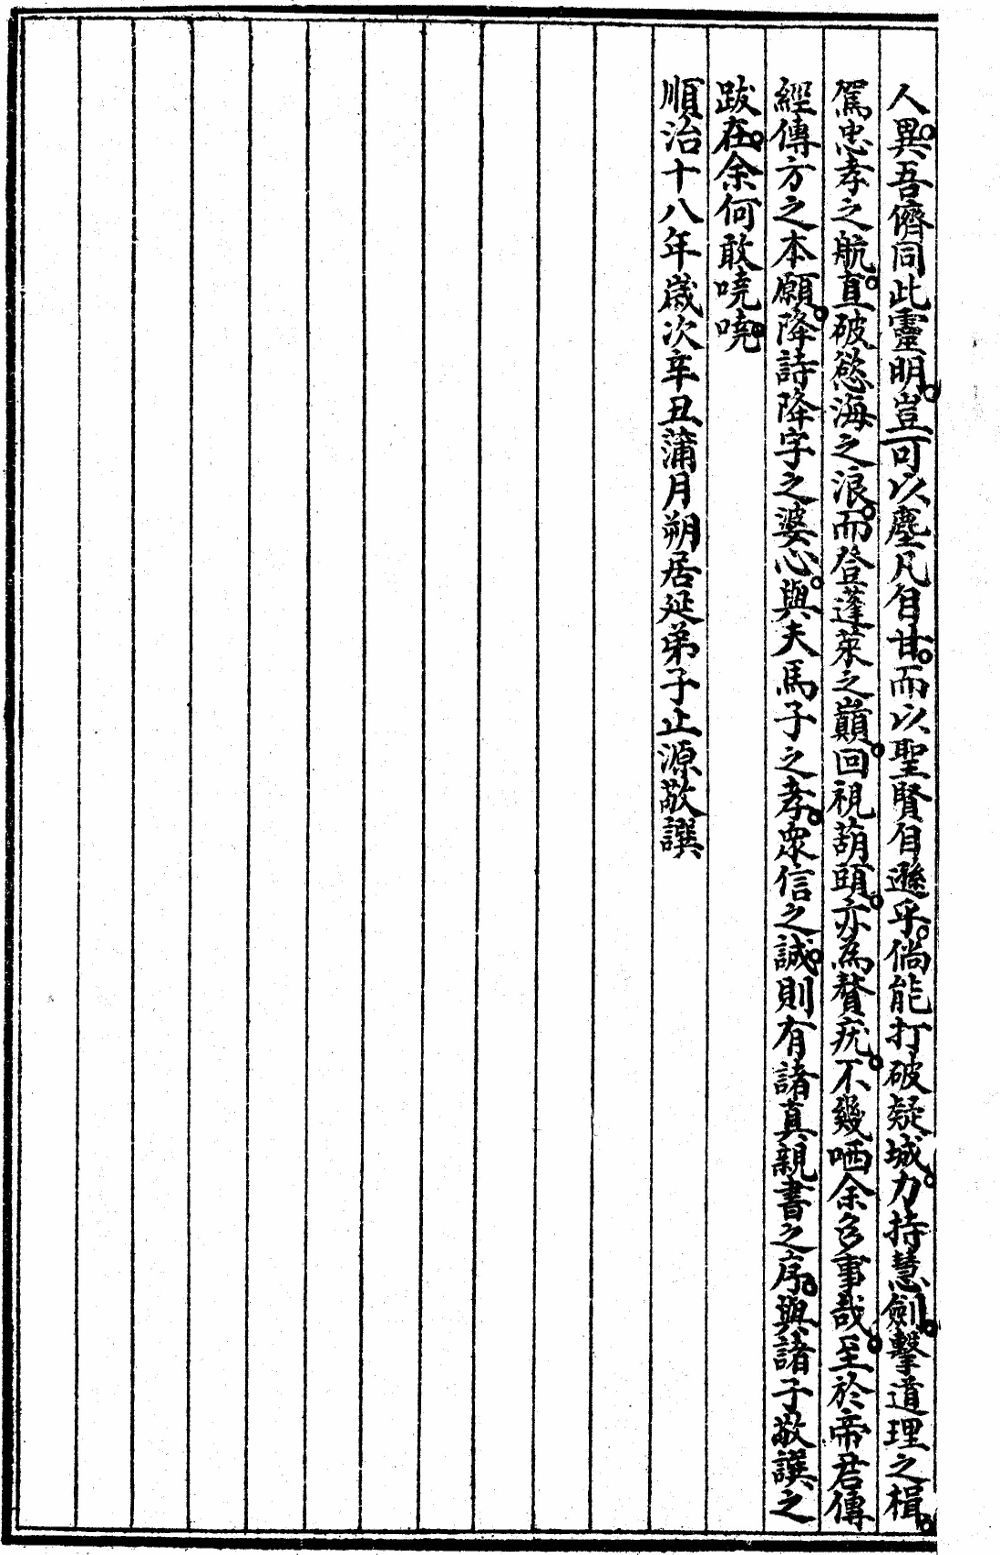 人異。吾儕同此靈明。豈可以塵凡自甘。而以聖賢自遜乎。倘能打破疑城。力持慧劍。擊道理之楫。
駕忠孝之航。直破慾海之浪。而登蓬萊之巔。回視葫頭。亦為贅疣。不幾哂余多事哉。至於帝君傳
經傳方之本願。降詩降字之婆心。與夫馬子之孝。衆信之誠。則有諸真親書之序。與諸子敬譔之
跋在。余何敢嘵嘵。
順治十八年歲次辛丑蒲月朔居延弟子止源敬譔